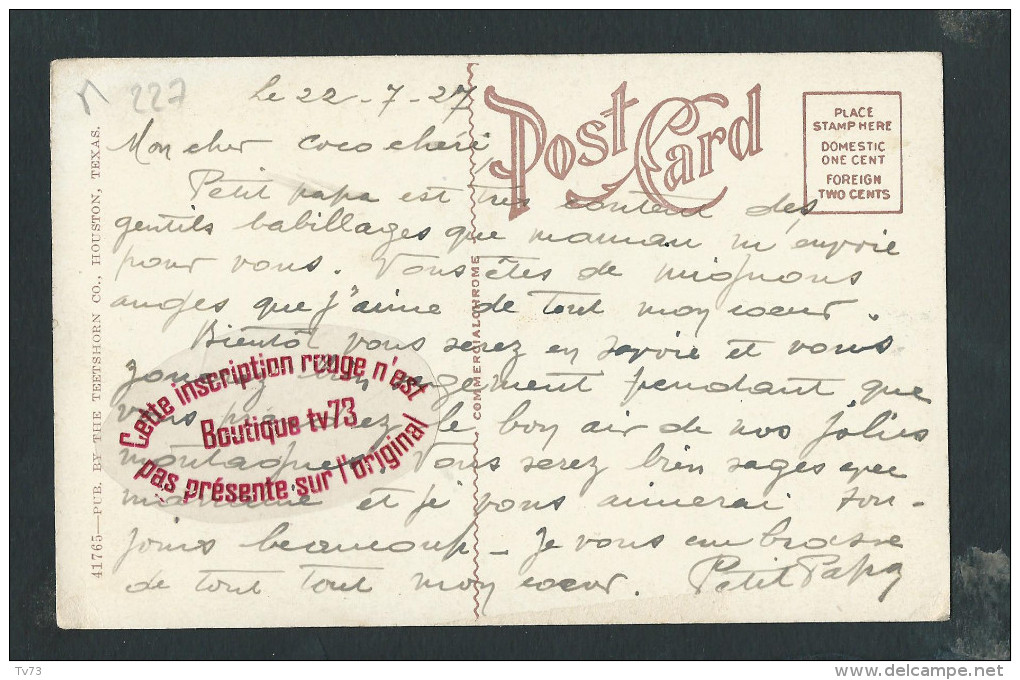 227
le 22-7-27
Mon cher coco chéri,
Petit papa est très content des
gentils babillages que maman m'envoie
pour vous. Vous êtes de mignons
anges que j'aime de tout mon coeur.
Bientôt vous serez en Savoie et vous
bien pendant que
vous le bon air de nos jolies
montagnes. Vous serez bien sages avec
et je vous aimerai tou-
jours beaucoup - Je vous embrasse
de tout tout mon coeur. Petit Papa
POST CARD
PLACE
STAMP HERE
DOMESTIC
ONE CENT
FOREIGN
TWO CENTS
COMMERCIALCHROME
41765—PUB. BY THE TEETSHORN CO., HOUSTON, TEXAS.
Cette inscription rouge n'est
Boutique tv73
pas présente sur l'original
Tv73
www.delcampe.net